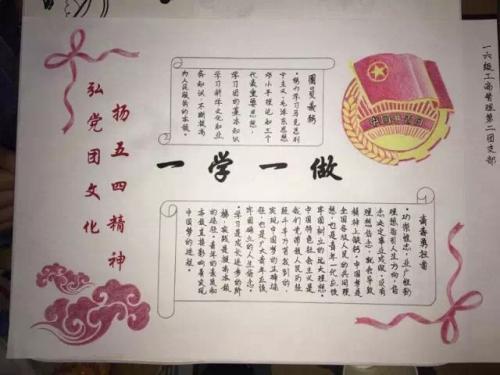 一六级工商管理第二团支部
中国共青团
·努力学习马克思列
宁主义、毛泽东思想
邓小平理论和三个
代表重要思想，
学习团的基本知识
学习科学文化和业
务知识，不断提高
为人民服务的本领。
一学一做
·功崇惟志，业广惟勤
理想指引人生方向，信
念决定事业成败。没有
理想信念，就会导致
精神上缺钙。中国梦是
全国各族人民的共同理
想，也是青年一代应该
牢固树立的远大理想。
中国特色社会主义是
我们党带领人民历
经千辛万苦找到的
实现中国梦的正确道
路，也是广大青年应该
牢固确立的人生信念。
·学习是成长进步的阶
梯，实践是提高本领
的途径。青年的素质和
本领直接影响着实现
中国梦的进程。
扬五四精神
弘党团文化